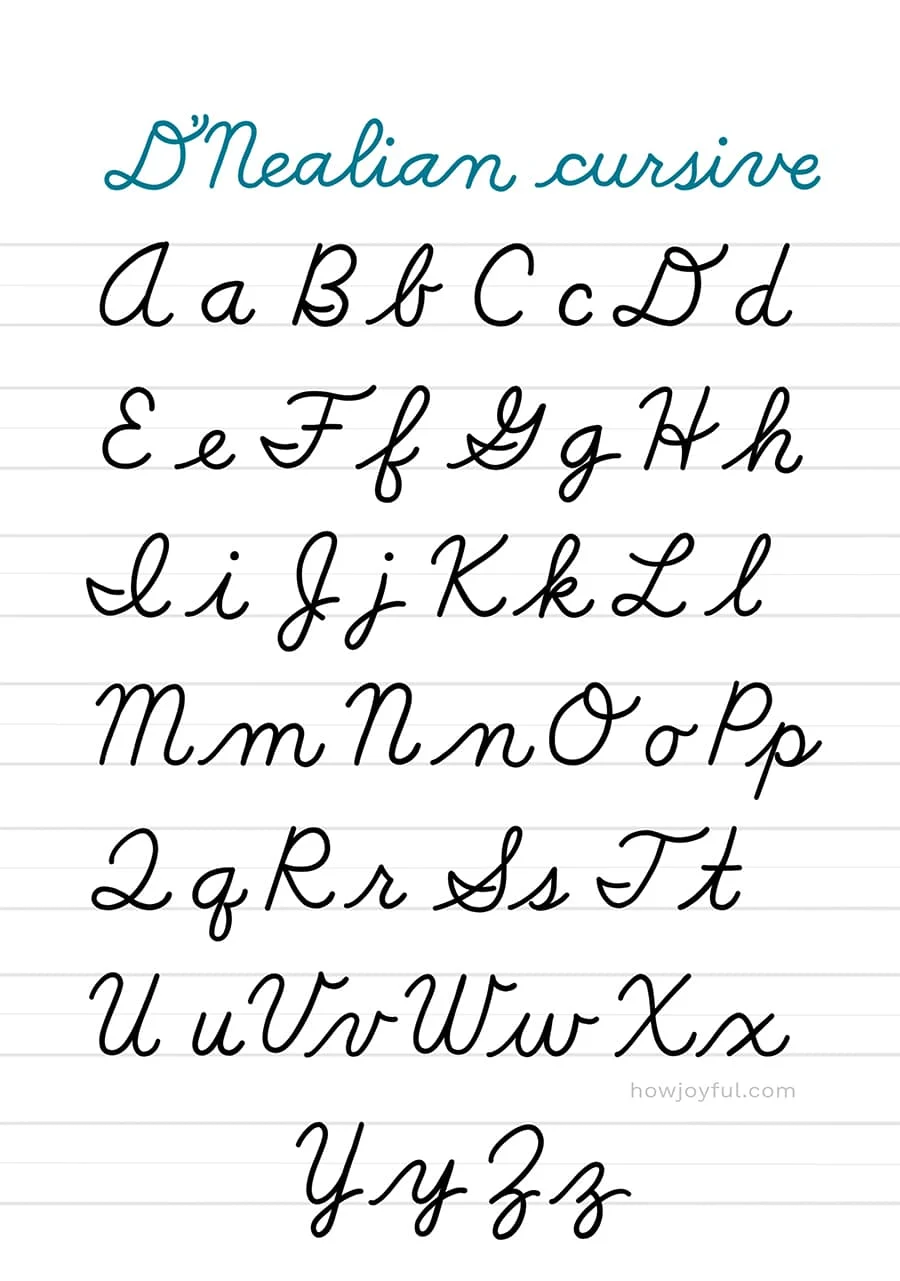 D'Nealian cursive
A a B b C c D d
E e F f G g H h
I i J j K k L l
M m N n O o P p
Q q R r S s T t
U u V v W w X x
howjoyful.com
Y y Z z